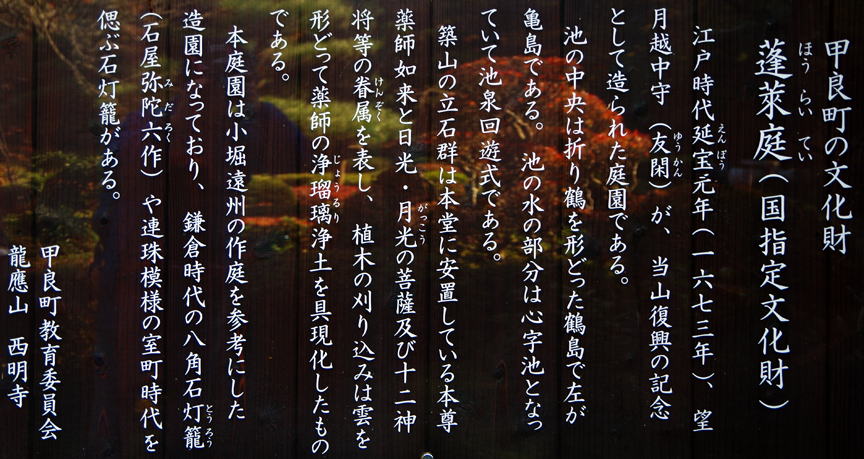 甲良町の文化財
蓬萊庭(国指定文化財)
ほうらいてい
江戸時代延宝元年(一六七三年)、望
えんぽう
月越中守(友閑)が、当山復興の記念
ゆうかん
として造られた庭園である。
池の中央は折り鶴を形どった鶴島で左が
亀島である。池の水の部分は心字池となっ
ていて池泉回遊式である。
築山の立石群は本堂に安置している本尊
薬師如来と日光・月光の菩薩及び十二神
がっこう
将等の眷属を表し、植木の刈り込みは雲を
けんぞく
形どって薬師の浄瑠璃浄土を具現化したもの
じょうるり
である。
本庭園は小堀遠州の作庭を参考にした
造園になっており、鎌倉時代の八角石灯籠
とうろう
(石屋弥陀六作)や連珠模様の室町時代を
みだろく
偲ぶ石灯籠がある。
甲良町教育委員会
龍應山 西明寺